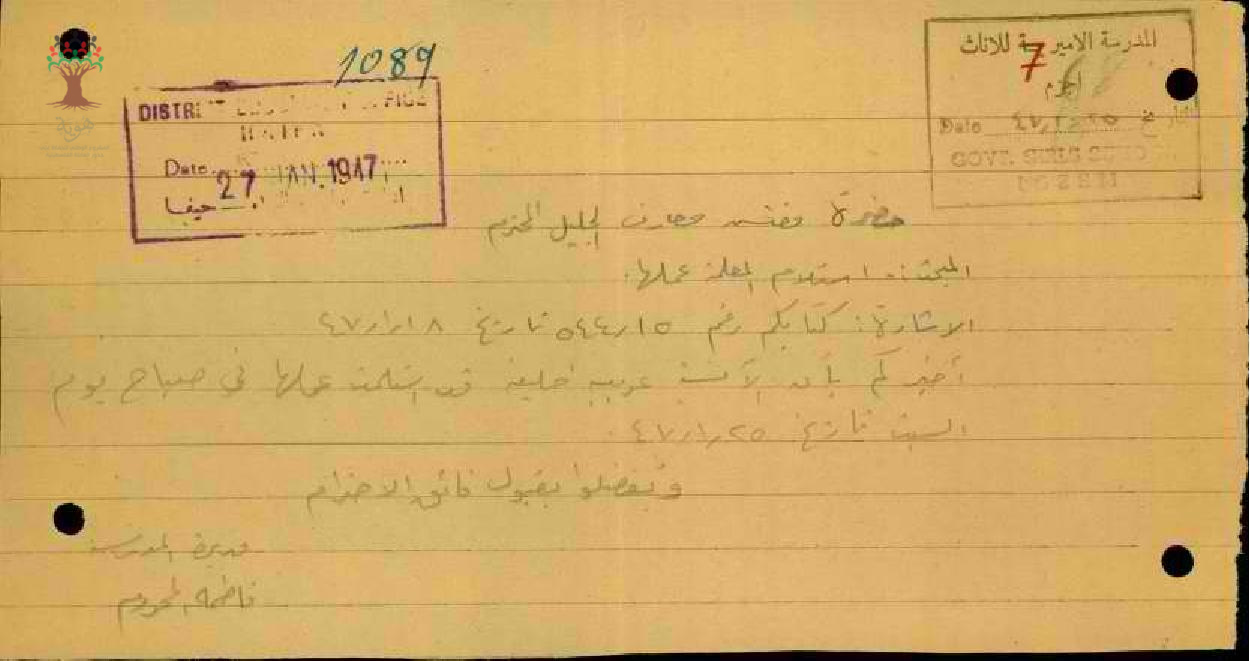 1089
DISTRICT EDUCATION OFFICE
HAIFA
Date 27 JAN. 1947
حيفا
المدرسة الاميرية للاناث
7
اجزم
Date ٤٧/١/٢٥ التاريخ
GOVT. GIRLS SCHO
هوية
حضرة مفتش معارف الجليل المحترم
المبحث:- استلام المعلمة عملها.
الاشارة: كتابكم رقم ٥٤٤/١٥ تاريخ ٤٧/١/١٨
أخبركم بأن الآنسة عربيه خليفه قد استلمت عملها في صباح يوم
السبت تاريخ ٤٧/١/٢٥.
وتفضلوا بقبول فائق الاحترام
مديرة المدرسة
فاطمة